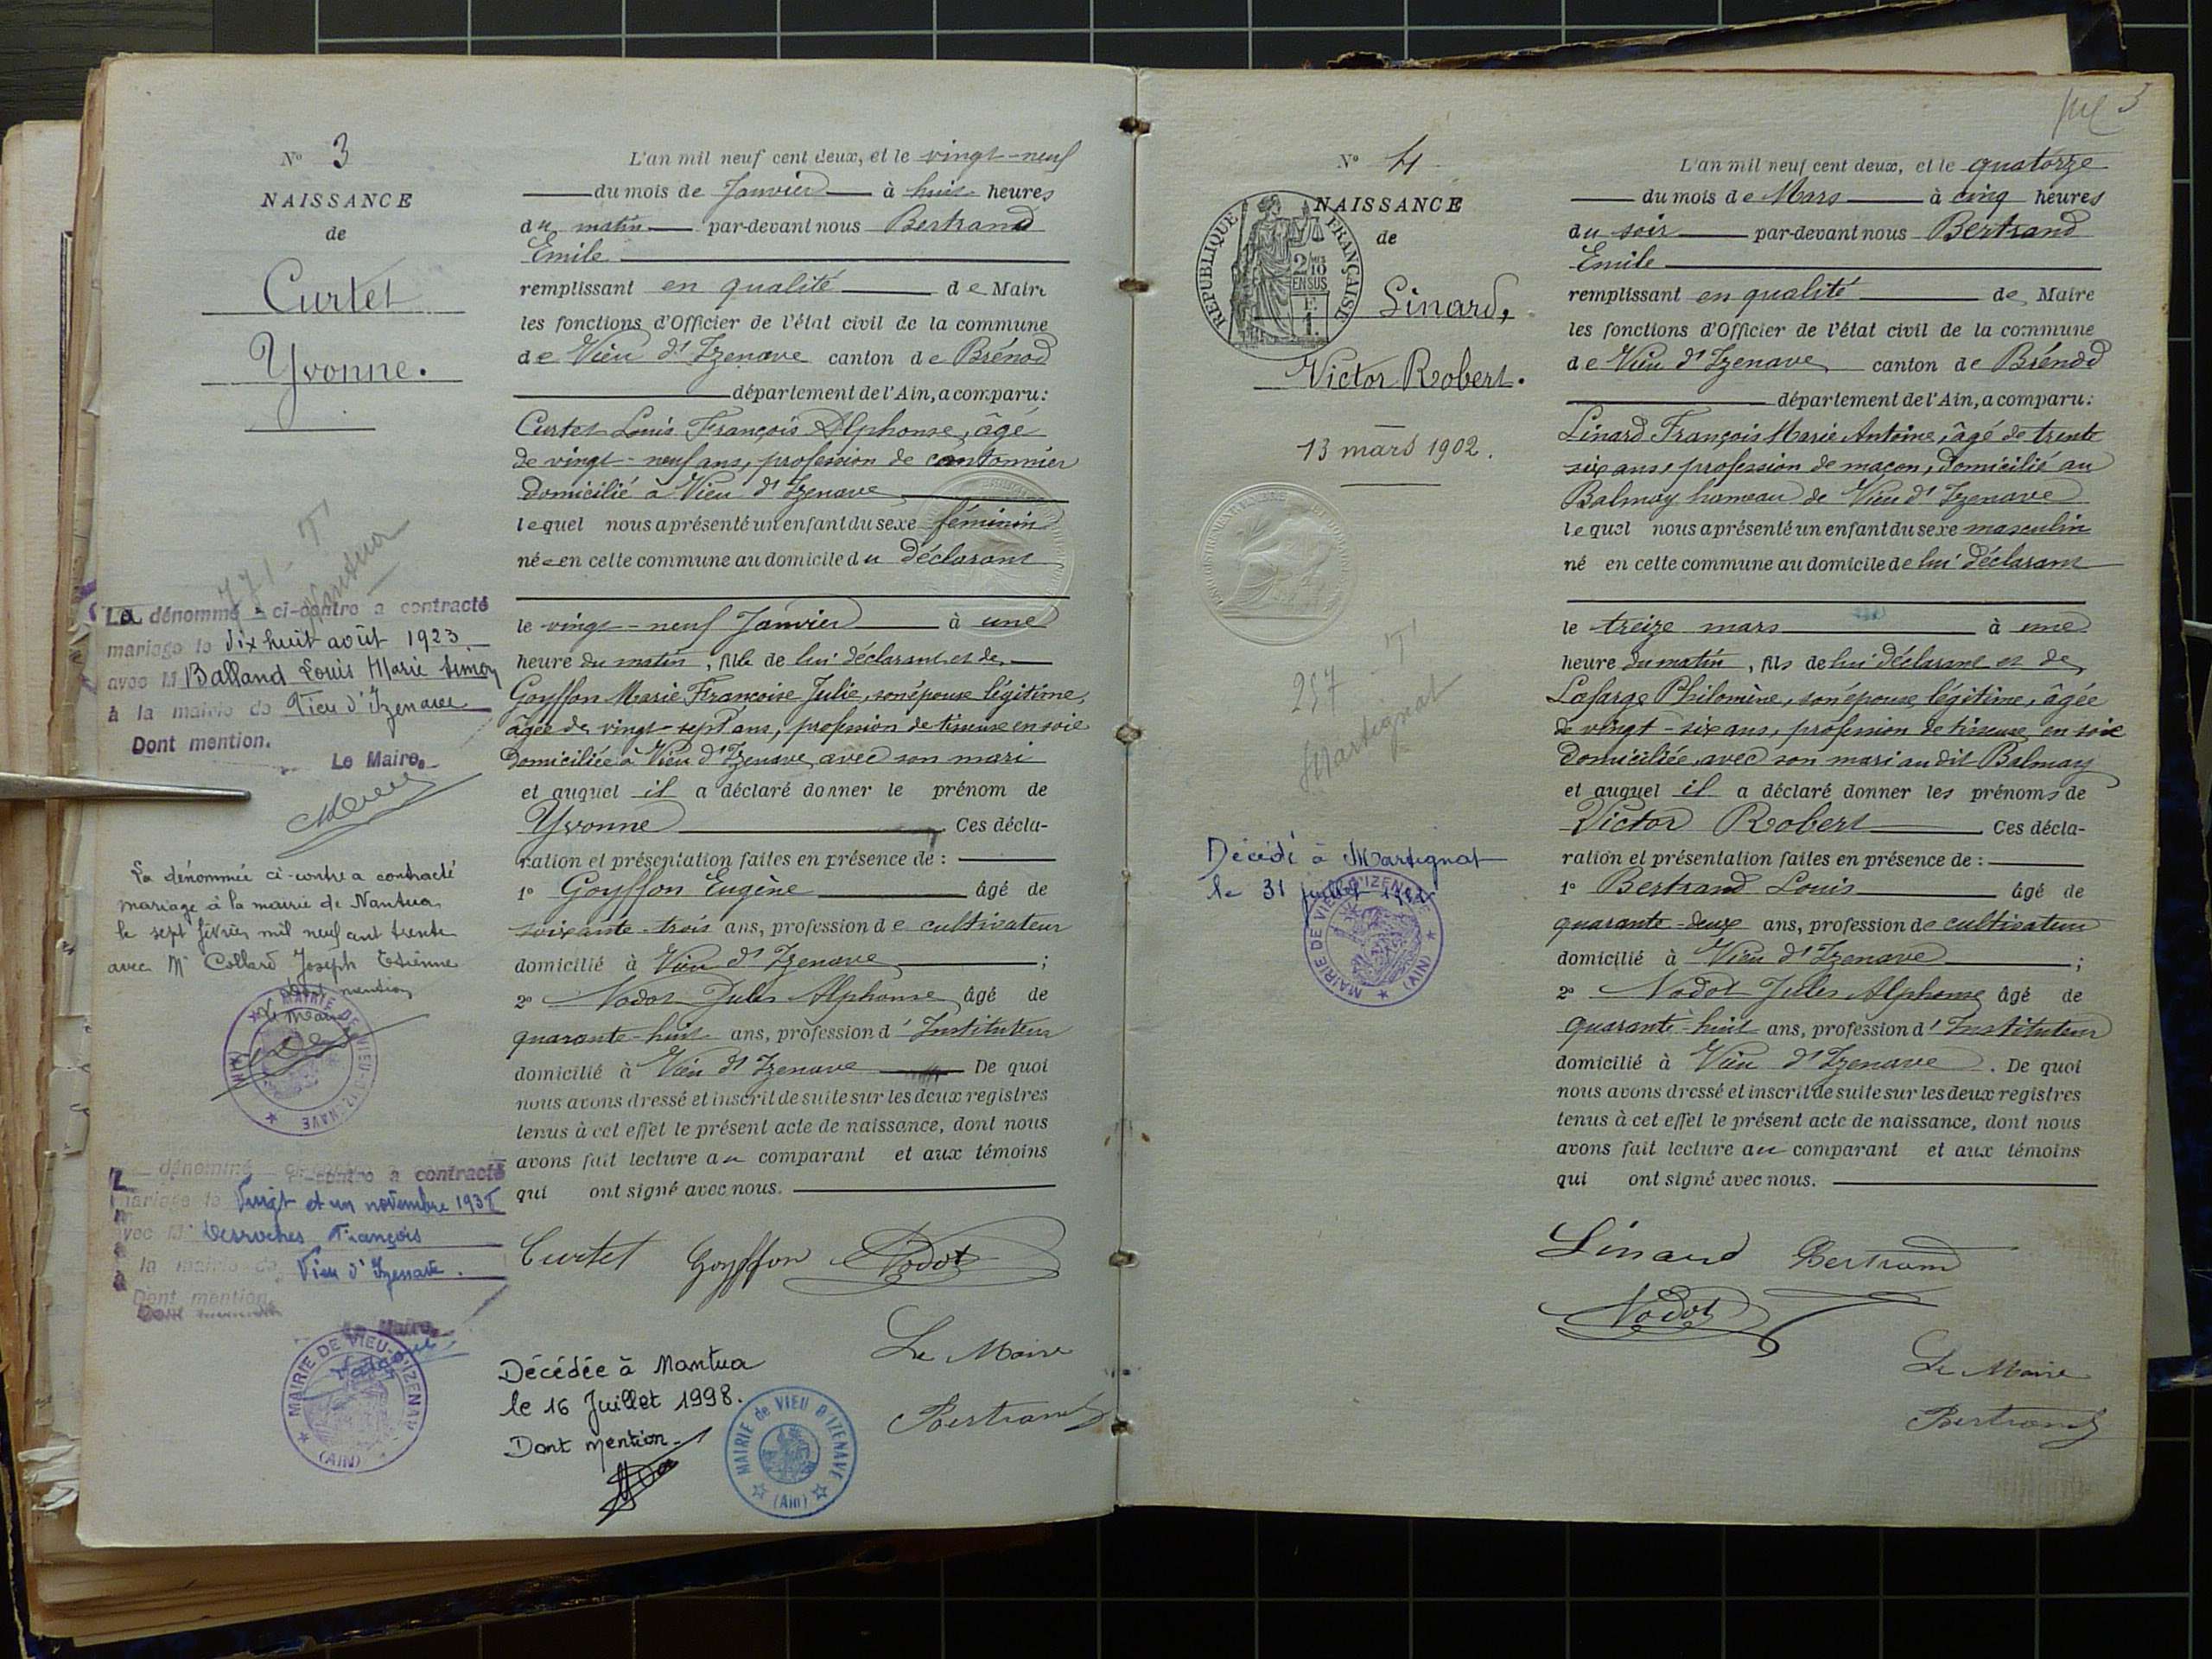 N° 3
NAISSANCE
de
Curtet
Yvonne.
771 - T
Nantua
La dénommée ci-contre a contracté
mariage le dix huit août 1923
avec M Balland Louis Marie Simon
à la mairie de Vieu d'Izenave
Dont mention.
Le Maire.
La dénommée ci-contre a contracté
mariage à la mairie de Nantua
le sept février mil neuf cent trente
avec Mr Collard Joseph Etienne
Dont mention
Le Maire
MAIRIE DE VIEU-D'IZENAVE
(AIN)
dénommé ci-contre a contracté
mariage le Vingt et un novembre
avec M Desroches François
à la mairie de Vieu d'Izenave.
Dont mention.
Le Maire.
MAIRIE DE VIEU-D'IZENAVE
(AIN)
L'an mil neuf cent deux, et le vingt-neuf
du mois de Janvier à huit heures
du matin par-devant nous Bertrand
Emile
remplissant en qualité de Maire
les fonctions d'Officier de l'état civil de la commune
de Vieu d'Izenave canton de Brénod
département de l'Ain, a comparu:
Curtet Louis François Alphonse, âgé
de vingt-neuf ans, profession de cantonnier
domicilié à Vieu d'Izenave
lequel nous a présenté un enfant du sexe féminin
née en cette commune au domicile du déclarant
le vingt-neuf Janvier à une
heure du matin, fille de lui déclarant et de
Goyffon Marie Françoise Julie, son épouse légitime,
âgée de vingt-sept ans, profession de tisseuse en soie
domiciliée à Vieu d'Izenave avec son mari
et auquel il a déclaré donner le prénom de
Yvonne Ces décla-
ration et présentation faites en présence de :
1° Goyffon Eugène âgé de
soixante-trois ans, profession de cultivateur
domicilié à Vieu d'Izenave ;
2° Nodot Jules Alphonse âgé de
quarante-huit ans, profession d'Instituteur
domicilié à Vieu d'Izenave De quoi
nous avons dressé et inscrit de suite sur les deux registres
tenus à cet effet le présent acte de naissance, dont nous
avons fait lecture au comparant et aux témoins
qui ont signé avec nous.
Curtet Goyffon Nodot
Le Maire
Bertrand
Décédée à Nantua
le 16 Juillet 1998.
Dont mention.
MAIRIE de VIEU D'IZENAVE
(Ain)
3
N° 4
NAISSANCE
de
REPUBLIQUE FRANÇAISE
2/10
EN SUS
Linard,
Victor Robert.
13 mars 1902.
257 T
Martignat
Décédé à Martignat
le 31 juillet
MAIRIE DE VIEU-D'IZENAVE
(AIN)
L'an mil neuf cent deux, et le quatorze
du mois de Mars à cinq heures
du soir par-devant nous Bertrand
Emile
remplissant en qualité de Maire
les fonctions d'Officier de l'état civil de la commune
de Vieu d'Izenave canton de Brénod
département de l'Ain, a comparu:
Linard François Marie Antoine, âgé de trente
six ans, profession de maçon, domicilié au
Balmay hameau de Vieu d'Izenave
lequel nous a présenté un enfant du sexe masculin
né en cette commune au domicile de lui déclarant
le treize mars à une
heure du matin, fils de lui déclarant et de
Lafarge Philomène, son épouse légitime, âgée
de vingt-six ans, profession de tisseuse en soie
domiciliée avec son mari au dit Balmay
et auquel il a déclaré donner les prénoms de
Victor Robert Ces décla-
ration et présentation faites en présence de :
1° Bertrand Louis âgé de
quarante-deux ans, profession de cultivateur
domicilié à Vieu d'Izenave ;
2° Nodot Jules Alphonse âgé de
quarante-huit ans, profession d'Instituteur
domicilié à Vieu d'Izenave. De quoi
nous avons dressé et inscrit de suite sur les deux registres
tenus à cet effet le présent acte de naissance, dont nous
avons fait lecture au comparant et aux témoins
qui ont signé avec nous.
Linard Bertrand
Nodot
Le Maire
Bertrand